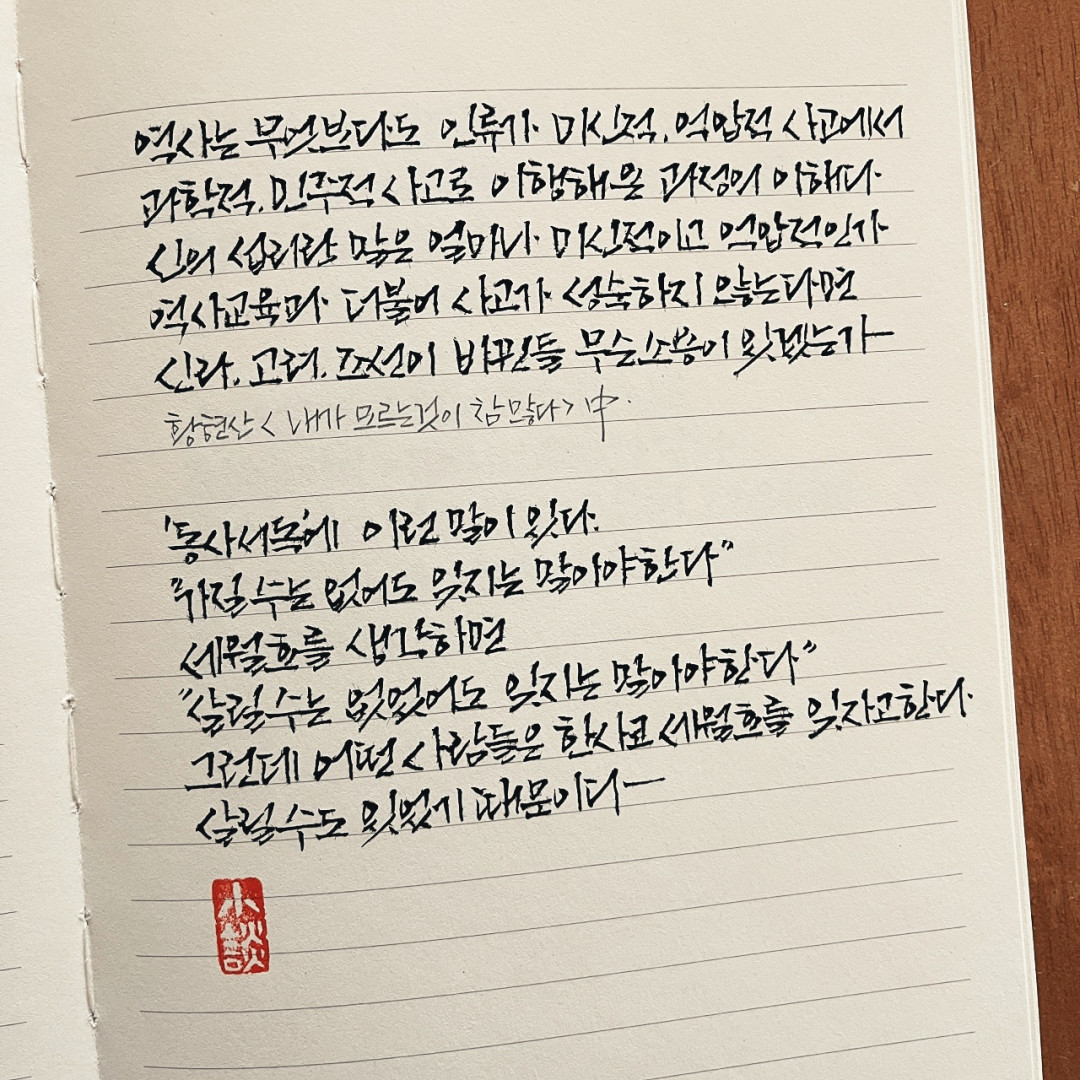 역사는 무엇보다도 인류가 미신적, 억압적 사고에서
과학적, 민주적 사고로 이행해온 과정의 이해다.
신의 섭리란 말은 얼마나 미신적이고 억압적인가
역사교육과 더불어 사고가 성숙하지 않는다면
신라, 고려, 조선이 바뀐들 무슨소용이 있겠는가
황현산 < 내가 모르는것이 참 많다 > 中.
'동사서독'에 이런 말이 있다.
"가질 수는 없어도 잊지는 말아야한다"
세월호를 생각하면
"살릴 수는 없었어도 잊지는 말아야한다"
그런데 어떤 사람들은 한사코 세월호를 잊자고한다.
살릴수도 있었기 때문이다
小談